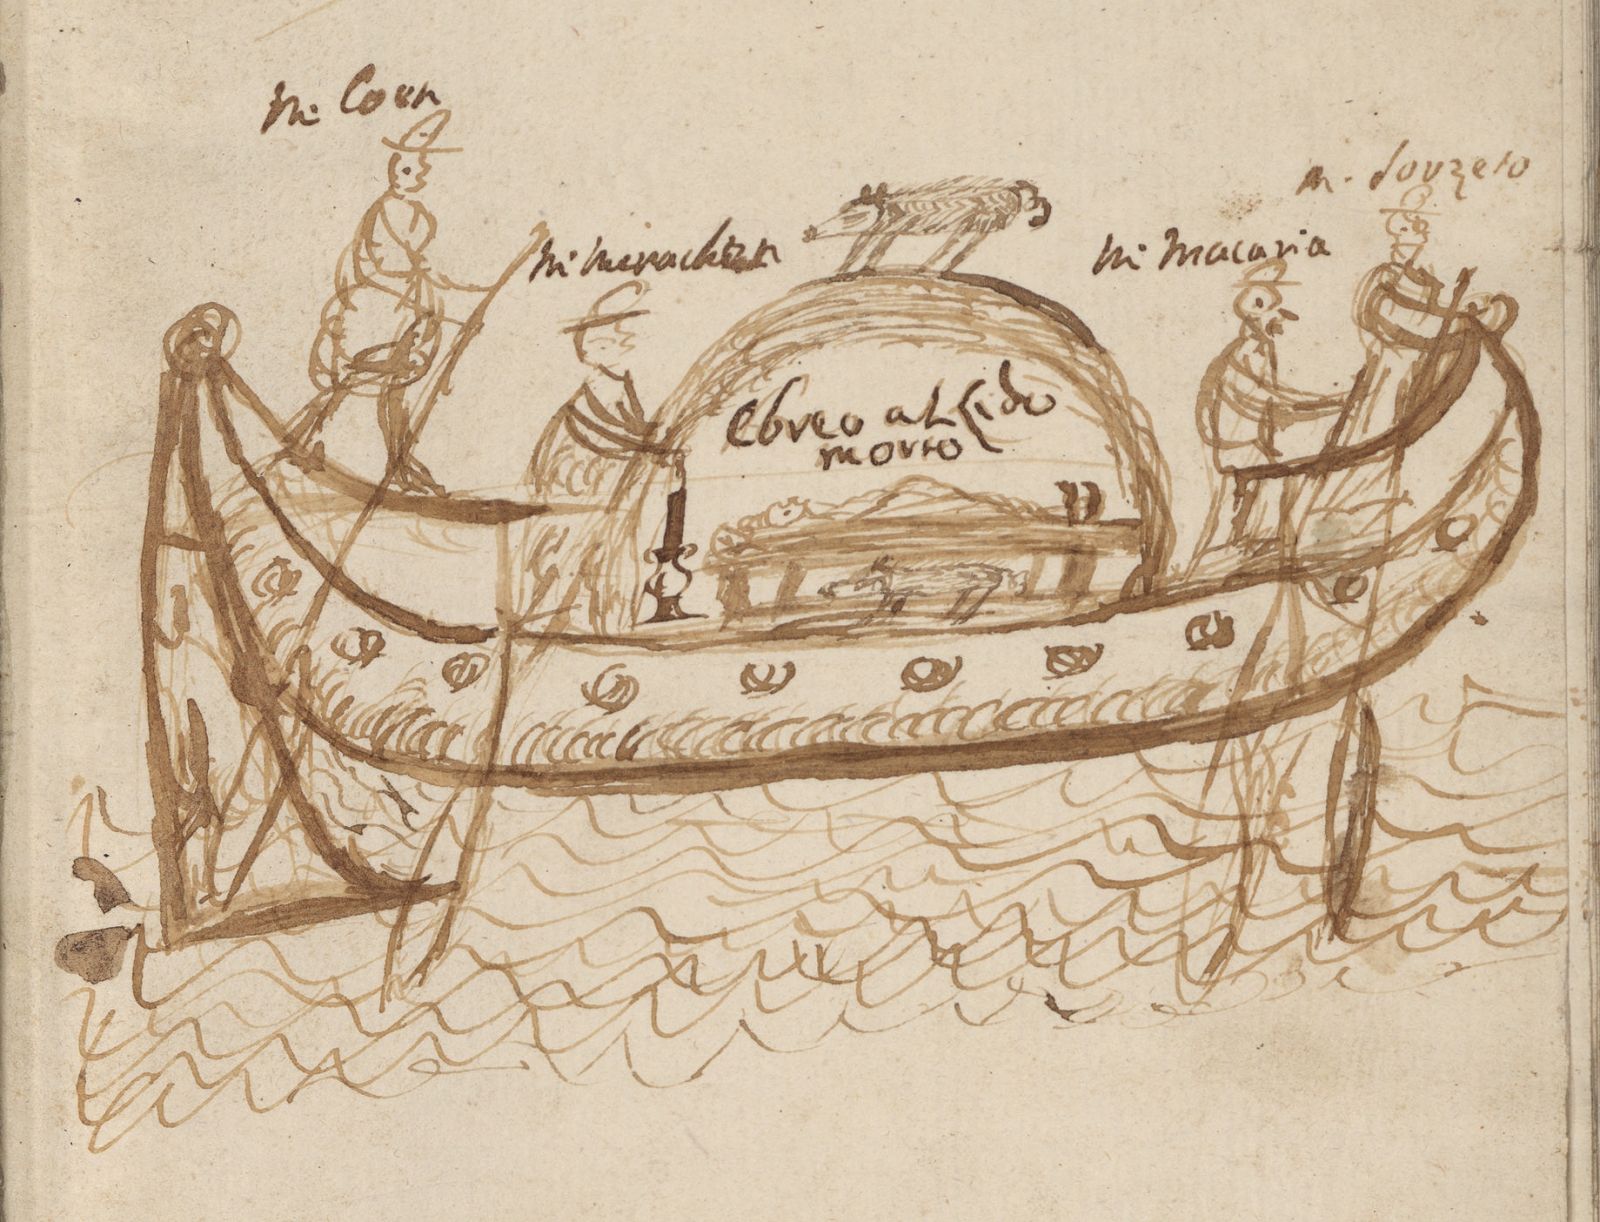 m: Coen
m: mirachen
m: macaria
m. Souzeto
Ebreo al Lido
morto